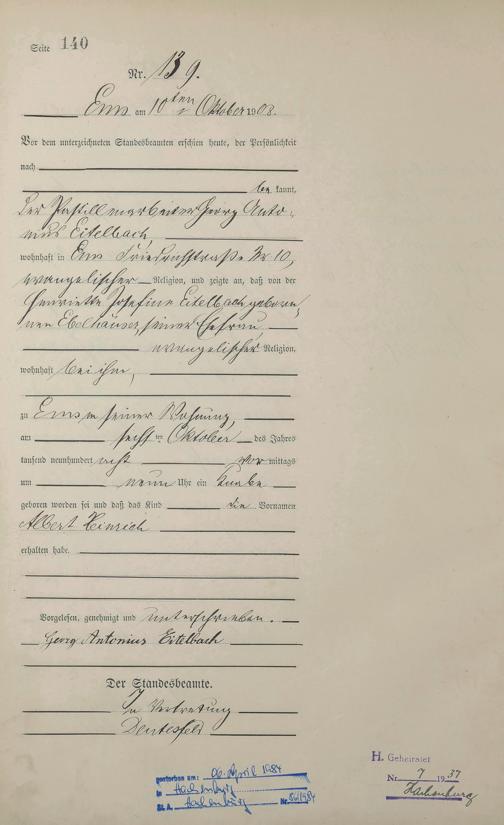 Seite 140
Nr. 139.
Ems am 10ten Oktober 1908.
Vor dem unterzeichneten Standesbeamten erschien heute, der Persönlichkeit
nach
be kannt,
der Pastillenarbeiter Georg Anto-
nius Eitelbach,
wohnhaft in Ems Friedrichstraße Nr 10,
evangelischer Religion, und zeigte an, daß von der
Henriette Josefine Eitelbach gebore-
nen Ebelhäuser, seiner Ehefrau,
evangelischer Religion,
wohnhaft bei ihm,
zu Ems in seiner Wohnung,
am sechsten Oktober des Jahres
tausend neunhundert acht vor mittags
um neun Uhr ein Knabe
geboren worden sei und daß das Kind die Vornamen
Albert Heinrich
erhalten habe.
Vorgelesen, genehmigt und unterschrieben.
Georg Antonius Eitelbach
Der Standesbeamte.
In Vertretung
gestorben am: 06. April 1984
in Hachenburg
St. A. Hachenburg Nr.
H. Geheiratet
Nr. 7 1937
Hachenburg